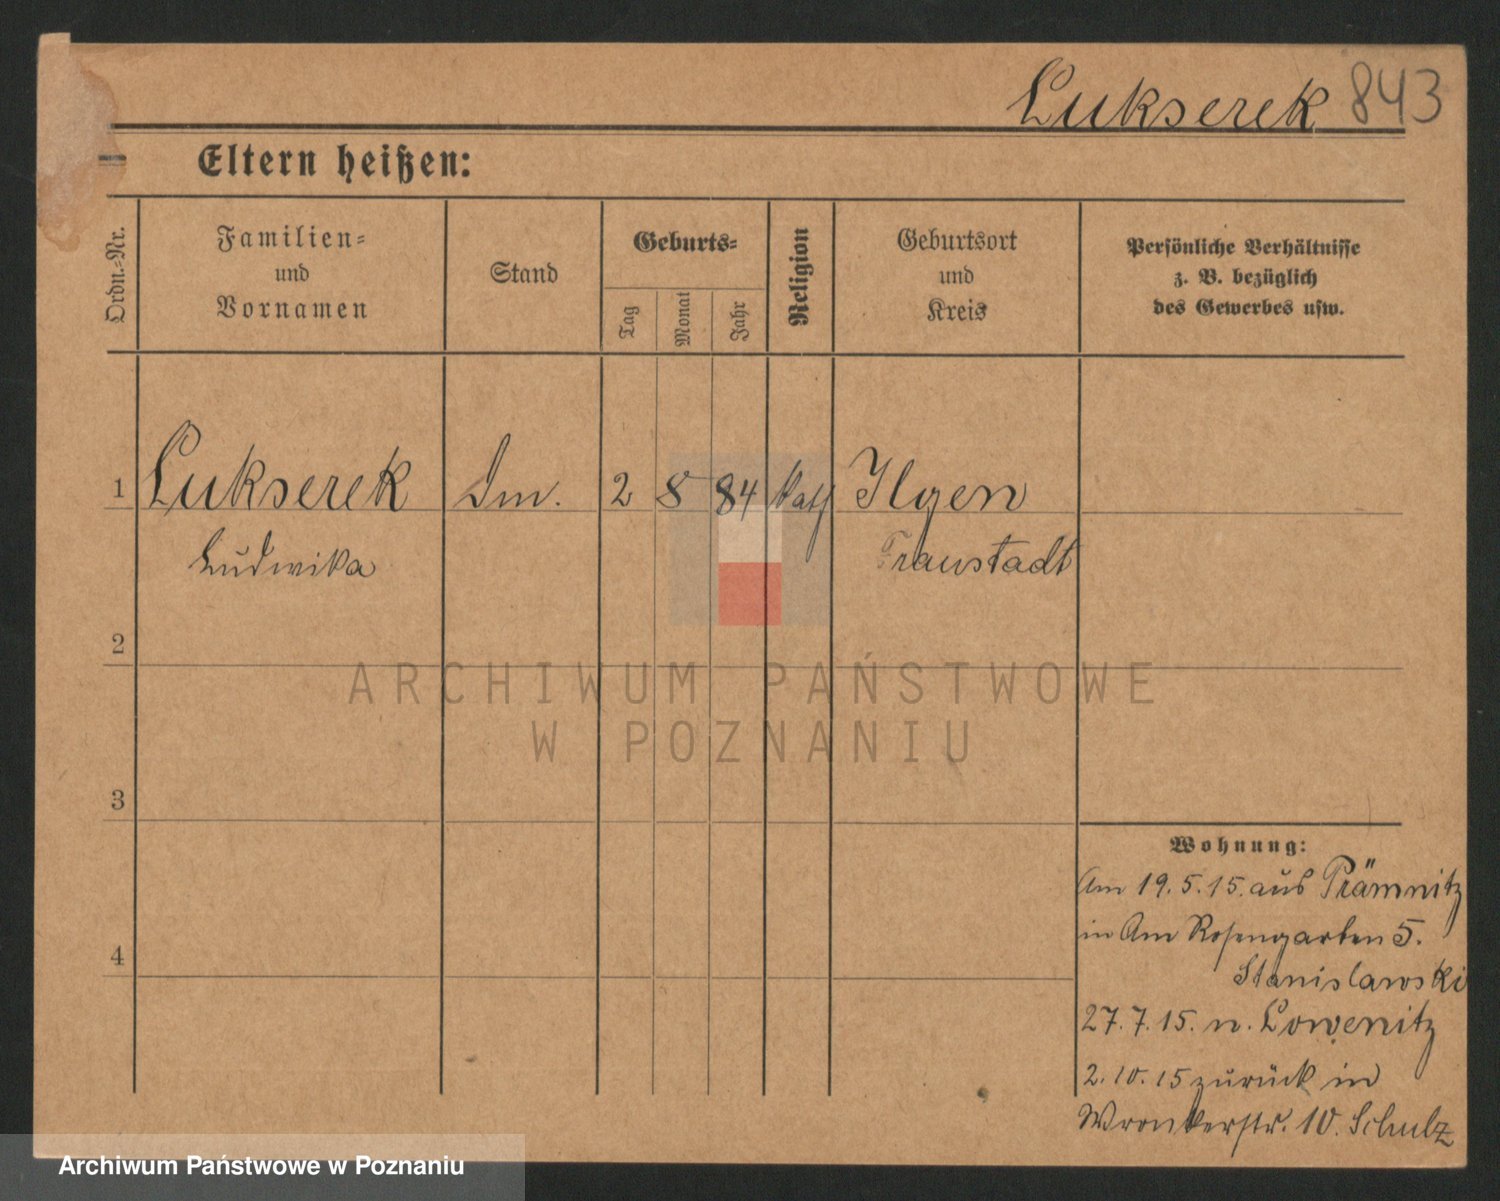 Lukserek 843
Eltern heißen:
Ordn.-Nr.
Familien-
und
Vornamen
Stand
Geburts-
Tag
Monat
Jahr
Religion
Geburtsort
und
Kreis
Persönliche Verhältnisse
z. B. bezüglich
des Gewerbes usw.
1 Lukserek 2 8 84 kath Ilgen
Ludwika Fraustadt
2
ARCHIWUM PAŃSTWOWE
W POZNANIU
3
Wohnung:
Am 19.5.15. aus Prämnitz
in Am Rosengarten 5.
4
Stanislawski
27.7.15. n. Lowenitz
2.10.15 zurück in
Wronkerstr. 10. Schulz
Archiwum Państwowe w Poznaniu